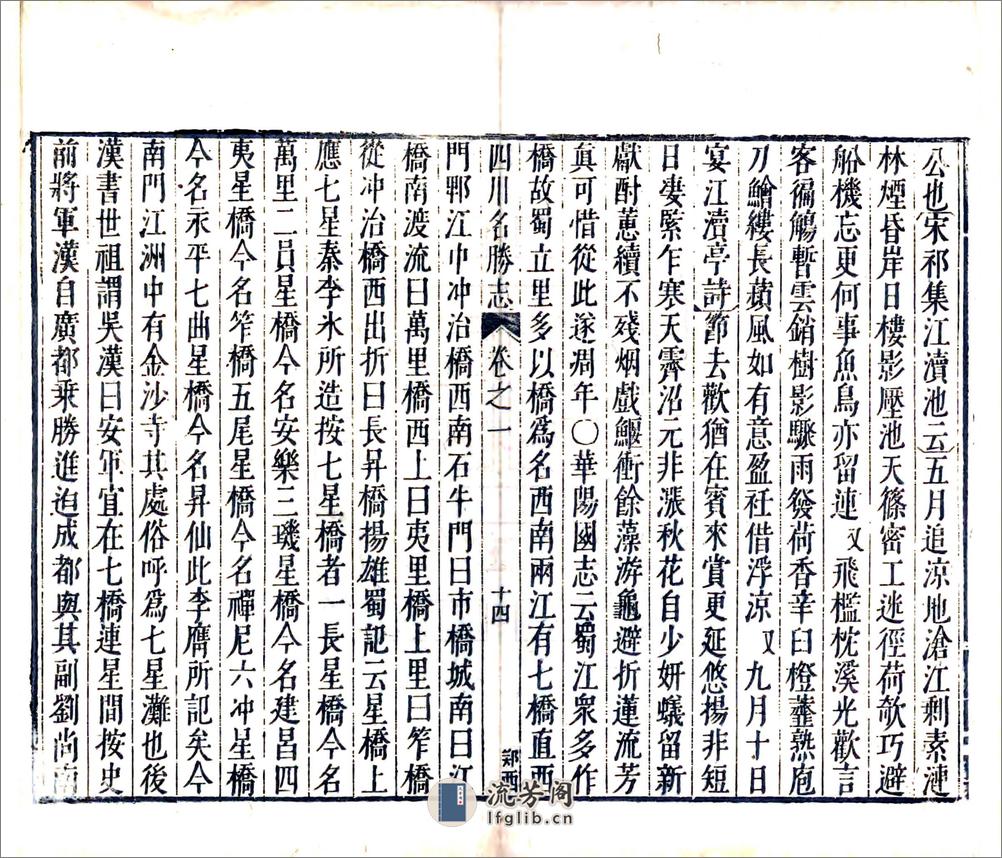 公也宋祁集江瀆池云五月追涼地滄江剩素漣
林煙昏岸日樓影壓池天篠密工迷徑荷欹巧避
船機忘更何事魚鳥亦留連又飛檻枕溪光歡言
客徧觴暫雲銷樹影驟雨發荷香辛臼橙虀熟庖
刀鱠縷長蘋風如有意盈衽借浮凉又九月十日
宴江瀆亭詩節去歡猶在賓來賞更延悠揚非短
日凄緊乍寒天霽沼元非漲秋花自少妍蟻留新
獻酎蕙續不殘烟戲鰋衝餘藻游龜避折蓮流芳
真可惜從此遂凋年〇華陽國志云蜀江衆多作
橋故蜀立里多以橋爲名西南兩江有七橋直西
四川名勝志 卷之一 十四 郊西
門郫江中冲治橋西南石牛門曰市橋城南曰江
橋南渡流曰萬里橋西上曰夷里橋上里曰笮橋
從冲治橋西出折曰長昇橋揚雄蜀記云星橋上
應七星秦李氷所造按七星橋者一長星橋今名
萬里二員星橋今名安樂三璣星橋今名建昌四
夷星橋今名笮橋五尾星橋今名禪尼六冲星橋
今名永平七曲星橋今名昇仙此李膺所記矣今
南門江洲中有金沙寺其處俗呼爲七星灘也後
漢書世祖謂吳漢曰安軍宜在七橋連星間按史
前將軍漢自廣都乘勝進迫成都與其副劉尚南
流芳阁
lfglib.cn